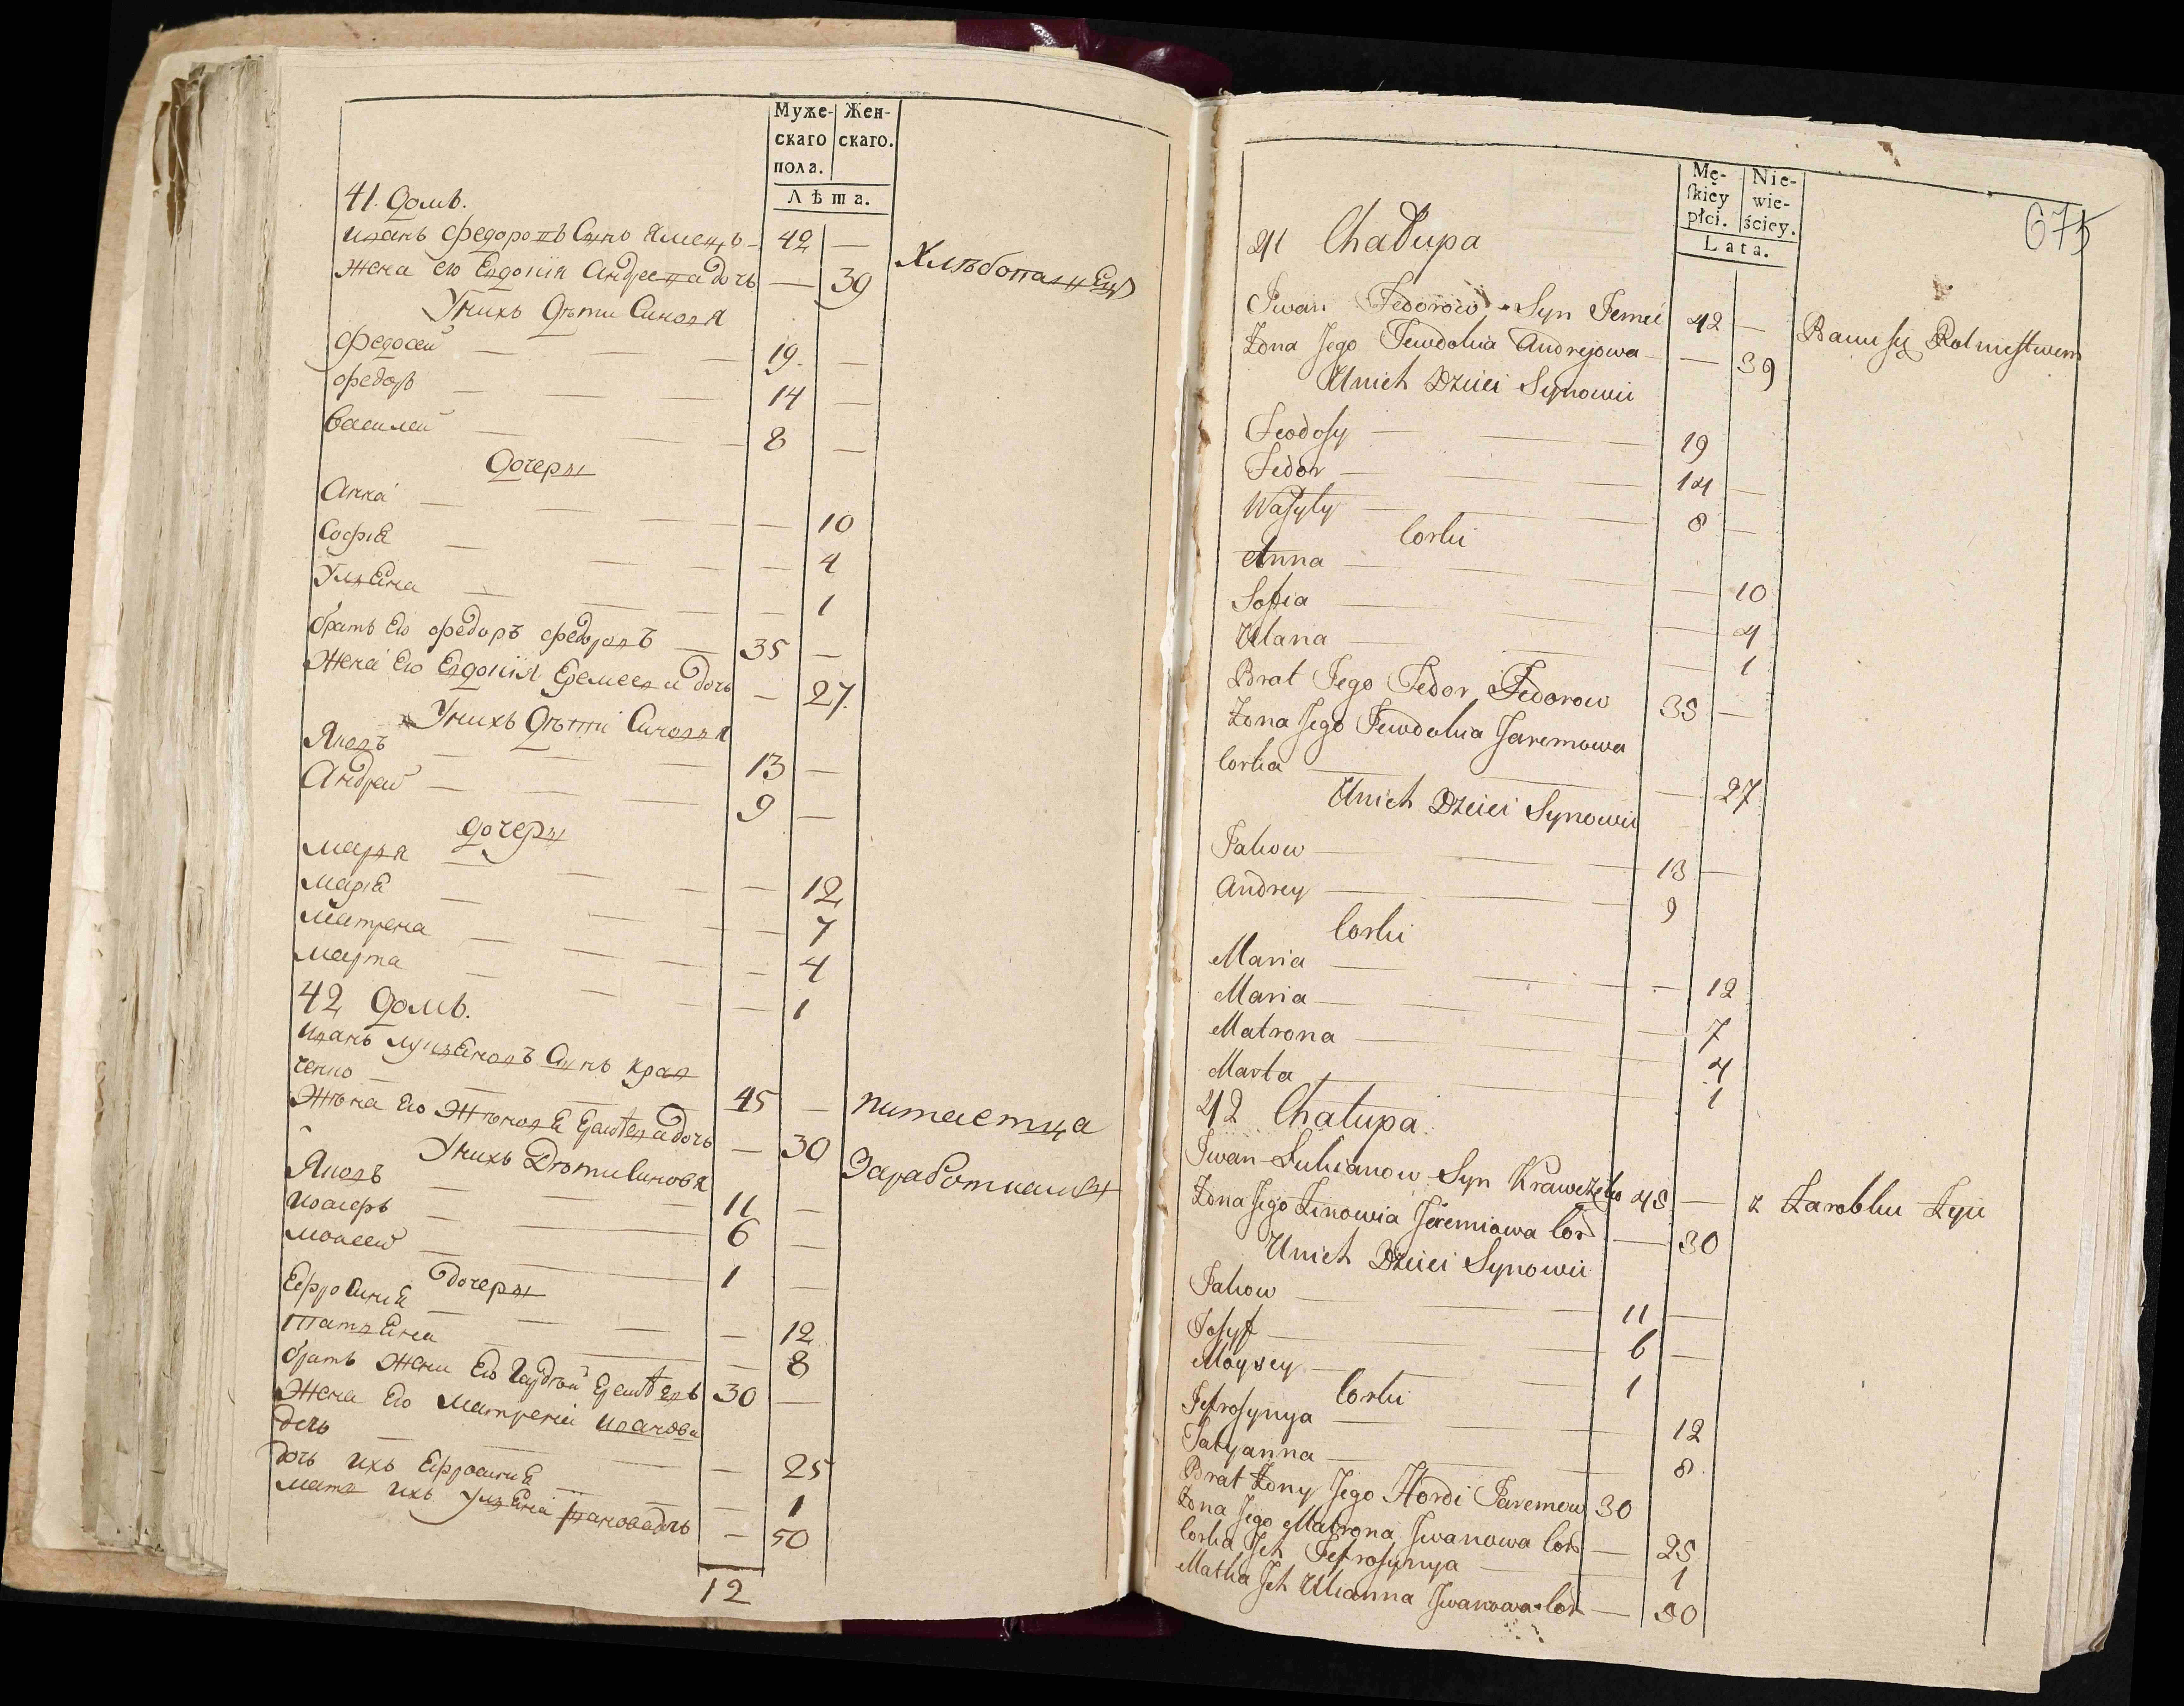 Муже- Жен-
скаго скаго.
пола.
Лѣта.
41. Домъ.
Иванъ Федоровъ Сынъ Ямецъ 42 — Хлѣбопашецъ
Жена его Евдокія Андреева дочь — 39
У нихъ Дѣти Синовя
Федосей — 19. —
Федоръ — 14 —
Василей — 8 —
Дочеры
Анна — — 10
Софія — — 4
Уляна — — 1
братъ его Федоръ Федоровъ — 35 —
Жена Его Евдокія Еремеева дочь — 27.
У нихъ Дѣти Синовя
Яковъ — 13 —
Андрей — 9 —
дочеры
Маря — — 12
Марія — — 7
Матрена — — 4
Марта — — 1
42 Домъ.
Иванъ Лукяновъ Сынъ Крав
ченко — 45 — питаетца
Жѣна Его Зѣновя дочь — 30 Заработками
У нихъ Дѣти Синовя
Яковъ — 11 —
Иосифъ — 6 —
Моисей — 1 —
дочеры
Ефросиния — — 12
Татяна — — 8
братъ Жени Его Гордѣй 30 —
Жена Его Матрена Иванова
дочь — — 25
дочь ихъ Ефросиния — 1
мать ихъ Уляна Иванова дочь — 50
12
Mę- Nie-
skiey wie-
płci. ściey.
Lata.
675
41 Chałupa
Iwan Fedorow Syn Jemeć 42 — Bawi się Rolnictwem
Żona Jego Jewdokia Andrejowa — 39
U nich Dzieci Synowie
Feodosy — 19
Fedor — 14 —
Wasyly — 8 —
Corki
Anna — — 10
Sofia — — 4
Ulana — — 1
Brat Jego Fedor Fedorow 35 —
Żona Jego Jewdokia Jaremowa
Corka — — 27
U nich Dzieci Synowie
Jakow — 13 —
Andrey — 9
Corki
Maria — — 12
Maria — — 7
Matrona — — 4
Marta — — 1
42 Chałupa.
Iwan Lukianow Syn Krawczenko 45 — z Zarobku Żyie
Żona Jego Zinowia Jeremiowa Cor — 30
U nich Dzieci Synowie
Jakow — 11 —
Josyf — 6 —
Moysey — 1
Corki
Jefrosynya — 12
Tatyanna — 8.
Brat Żony Jego Hordi Jaremow 30
Żona Jego Matrona Iwanowa Cor — 25
Corka Ich Jefrosynya — 1
Matka Ich Ulianna Iwanowa Cor — 50